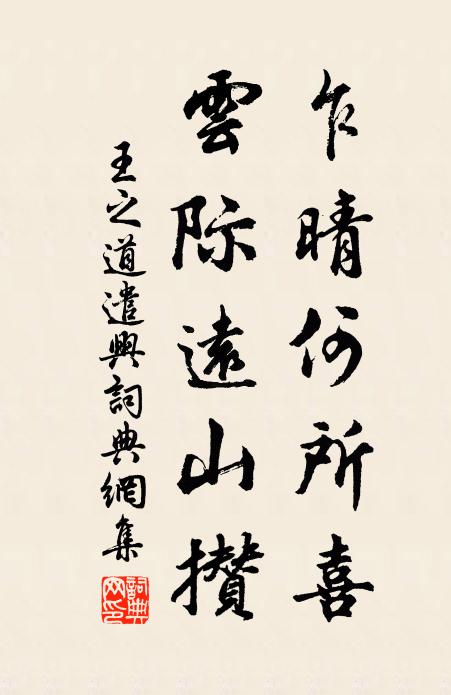 乍晴何所喜
雲际遠山攢
王之道遣興詞典網集
詞典网印